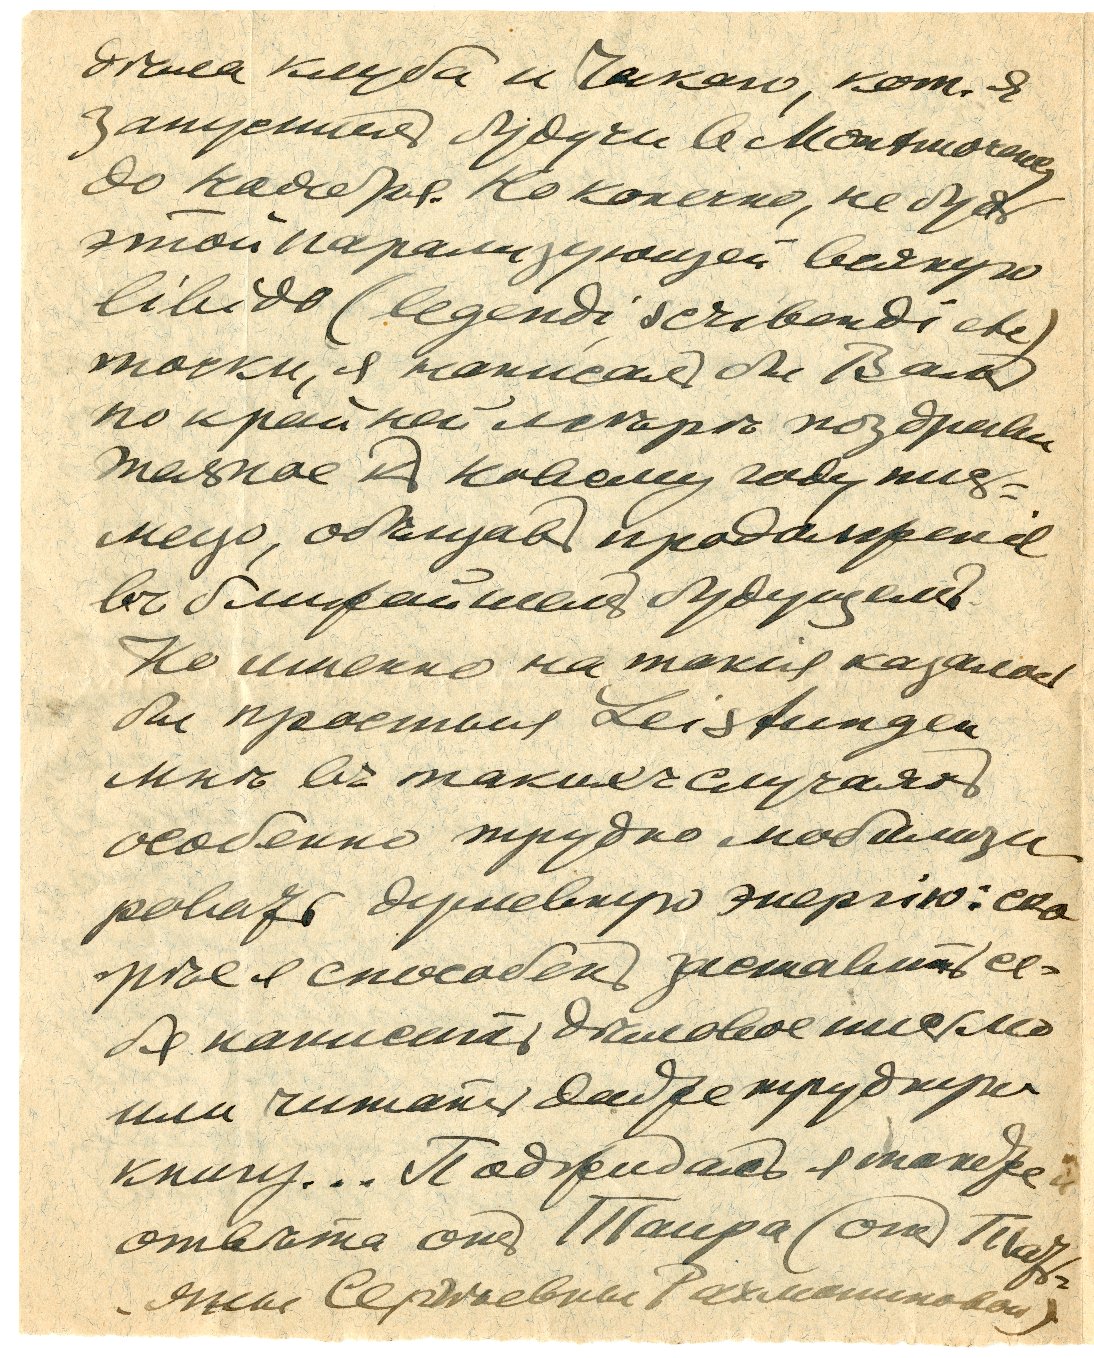 дѣла клуба и Чикаго, кот. я
запустилъ будучи в Монтморенси
до ноября. Но конечно, не будь
этой парализующей всякую
libido (legendi, scribendi etc)
тоски, я написалъ бы Вамъ
по крайней мѣрѣ поздрави
тельное къ Новому году пись-
мецо, обѣщавъ продолженіе
въ ближайшемъ будущемъ.
Но именно на такія казалось
бы простыя Leistungen
мнѣ въ такихъ случаяхъ
особенно трудно мобилизи
ровать душевную энергію: ско
рѣе я способенъ заставить се-
бя написать дѣловое письмо
или читать даже трудную
книгу... Поджидалъ я также и
отвѣта отъ Таира (отъ Тать-
яны Сергѣевны Рахманиновой)